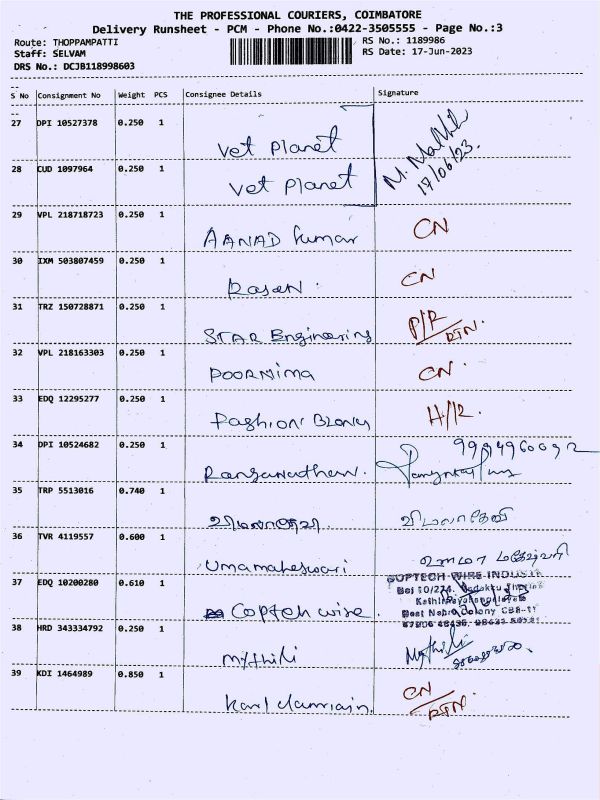 THE PROFESSIONAL COURIERS, COIMBATORE
Delivery Runsheet - PCM - Phone No.:0422-3505555 - Page No.:3
Route: THOPPAMPATTI RS No.: 1189986
Staff: SELVAM RS Date: 17-Jun-2023
DRS No.: DCJB118998603
S No Consignment No Weight PCS Consignee Details Signature
27 DPI 10527378 0.250 1
Vet Planet M. Malthi
28 CUD 1097964 0.250 1 17/06/23.
Vet Planet
29 VPL 218718723 0.250 1
AANAD Kumar CN
30 IXM 503807459 0.250 1
Rasen. CN
31 TRZ 150728871 0.250 1
STAR Engineering P/R RTN.
32 VPL 218163303 0.250 1
POORNima CN.
33 EDQ 12295277 0.250 1
Fashion H/R.
34 DPI 10524682 0.250 1 9994960092
Ranganathan.
35 TRP 5513016 0.740 1
விமலாதேவி
36 TVR 4119557 0.600 1
Umamaheswari உமா மகேஷ்வரி
37 EDQ 10200280 0.610 1
Coptech wire.
38 HRD 343334792 0.250 1
Mythili Mythili
39 KDI 1464989 0.850 1
CN
RTN.